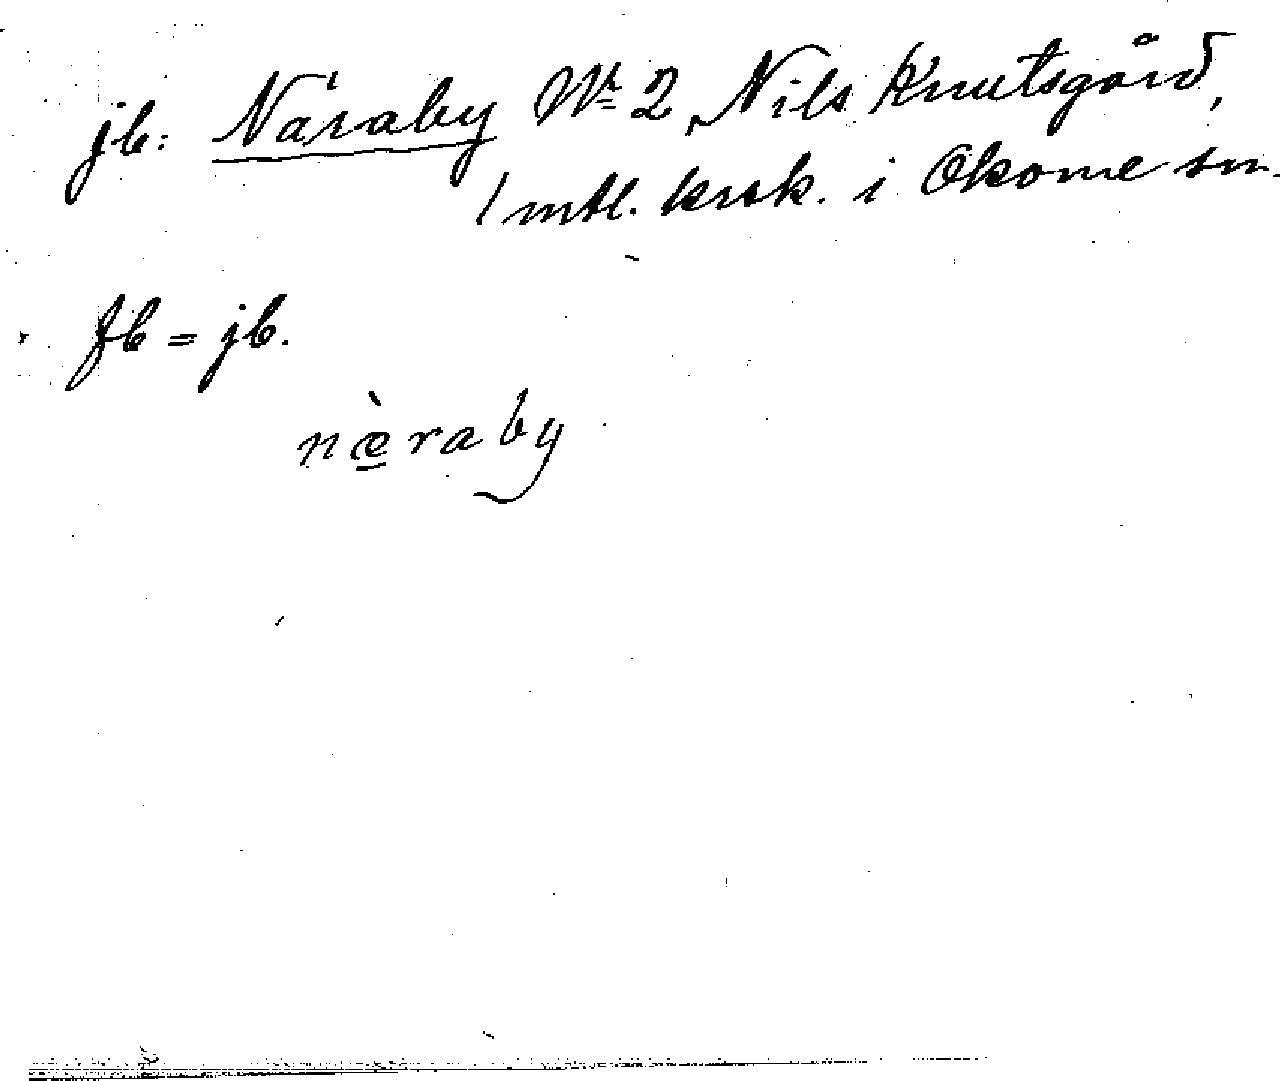 jb: Näraby Nr 2, Nils Knutsgård,
1 mtl. krsk. i Okome sn.
fb = jb.
næ̀raby